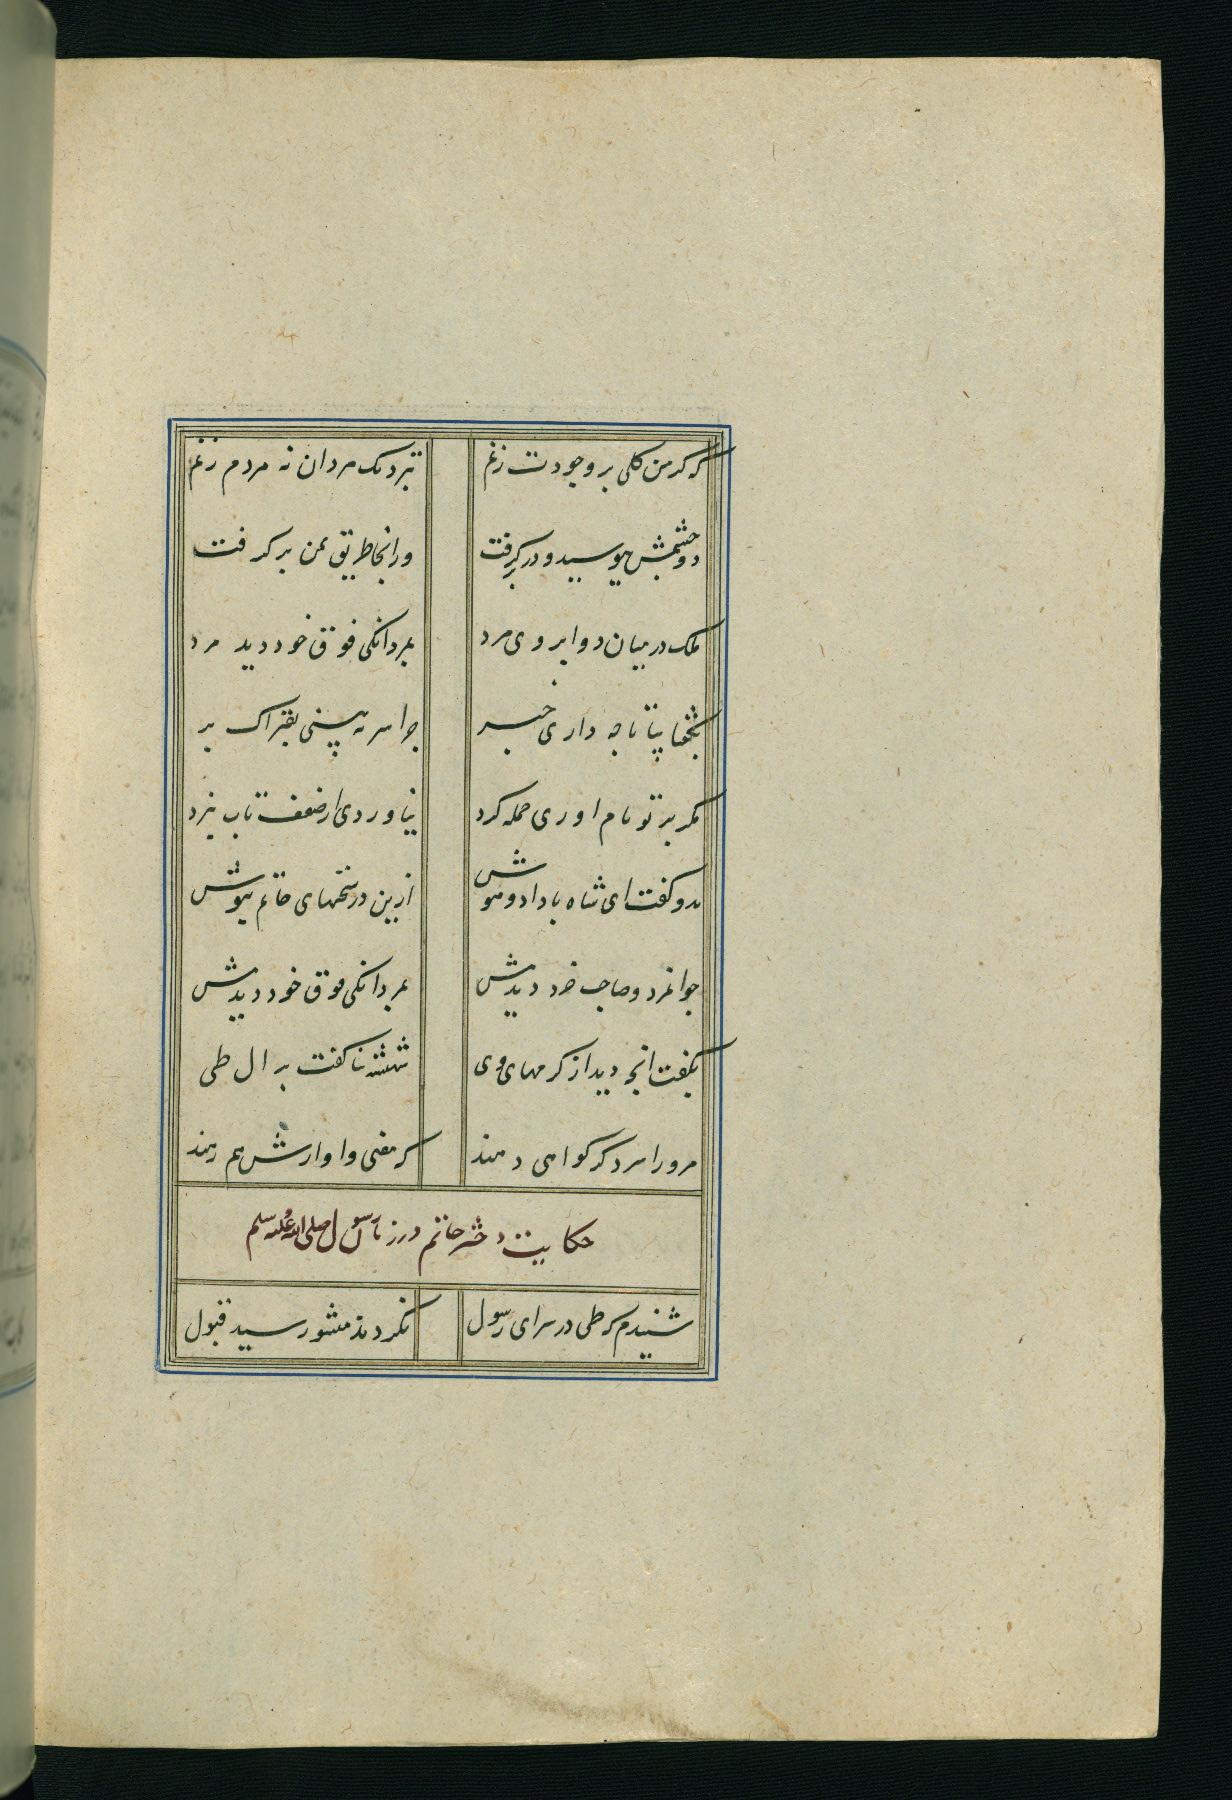 که گر من گلی بر وجودت زنم بنزدیک مردان نه مردم زنم
دو چشمش ببوسید و در بر گرفت وز انجا طریق یمن بر گرفت
ملک در میان دو ابروی مرد بمردانگی فوق خود دید مرد
بگفتا بیا تا چه داری خبر چرا سر نه بینی بفتراک بر
مگر بر تو نام اوری حمله کرد نیاوردی از ضعف تاب نبرد
بدو گفت ای شاه با داد و هوش ازین در سخنهای حاتم نیوش
جوانمرد و صاحب خرد دیدمش بمردانگی فوق خود دیدمش
بگفت انچه دید از کرمهای وی شهنشه ثنا گفت بر ال طی
مرو را سزد گر گواهی دهند که معنی و اوازش همرهند
حکایت دختر حاتم در زمان رسول صلی الله علیه وسلم
شنیدم که طی در سرای رسول نکردند منشور سید قبول